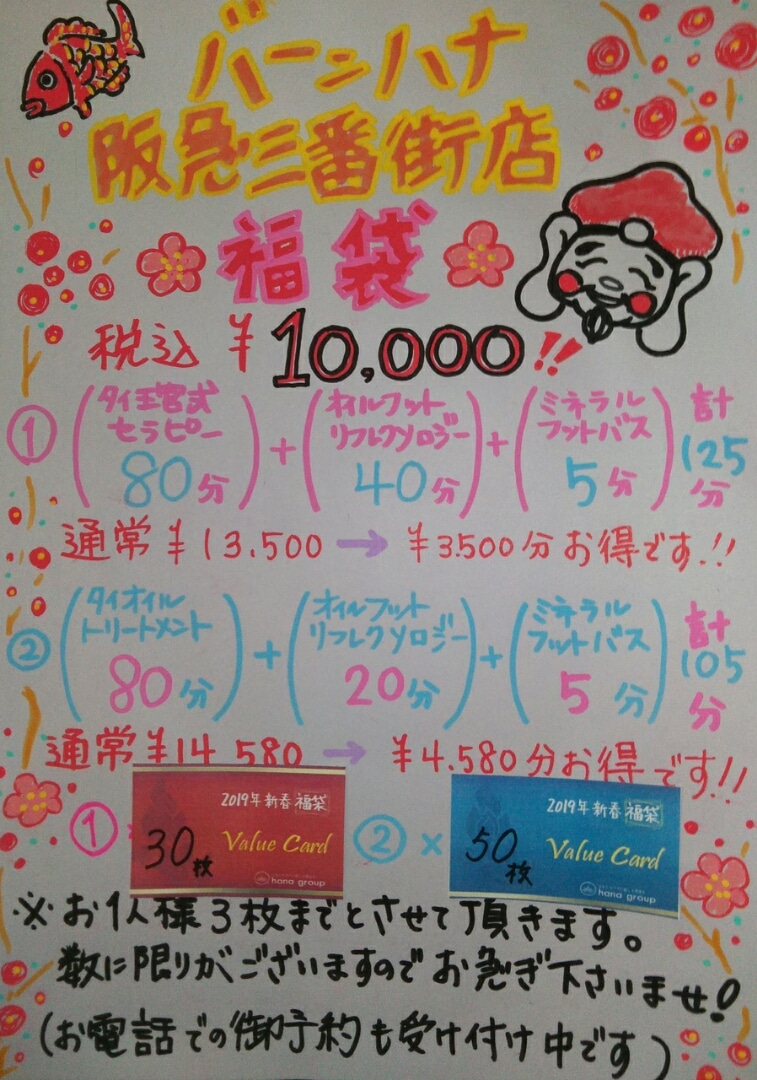 バーンハナ
阪急三番街店
福袋
税込 ¥10,000!!
① (タイ王宮式セラピー 80分) + (オイルフットリフレクソロジー 40分) + (ミネラルフットバス 5分) 計125分
通常¥13.500 → ¥3.500分お得です.!!
② (タイオイルトリートメント 80分) + (オイルフットリフレクソロジー 20分) + (ミネラルフットバス 5分) 計105分
通常¥14.580 → ¥4.580分お得です!!
① 2019年 新春 福袋 30枚 Value Card hana group
② × 2019年 新春 福袋 50枚 Value Card hana group
※お1人様3枚までとさせて頂きます。
数に限りがございますのでお急ぎ下さいませ!
(お電話での御予約も受け付け中です)